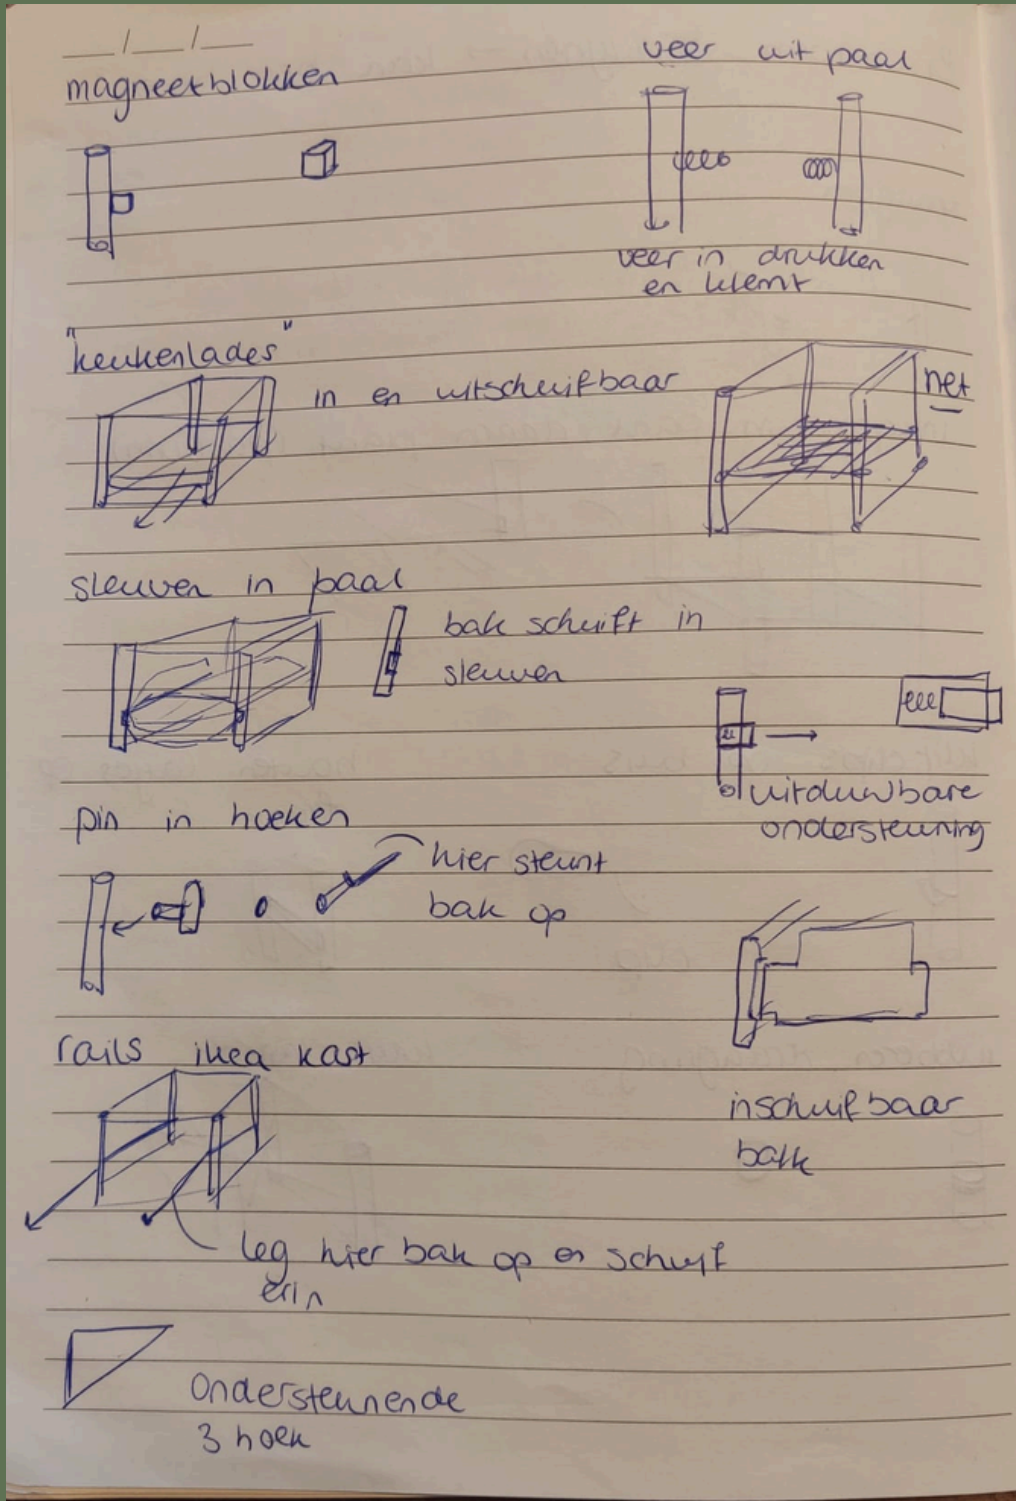 __/__/__
magneetblokken
veer uit paal
veer in drukken
en klemt
"keukenlades"
in en uitschuifbaar
net
sleuven in paal
bak schuift in
sleuven
uitduwbare
ondersteuning
pin in hoeken
hier steunt
bak op
rails ikea kast
inschuifbaar
bakk
leg hier bak op en schuif
erin
ondersteunende
3 hoek